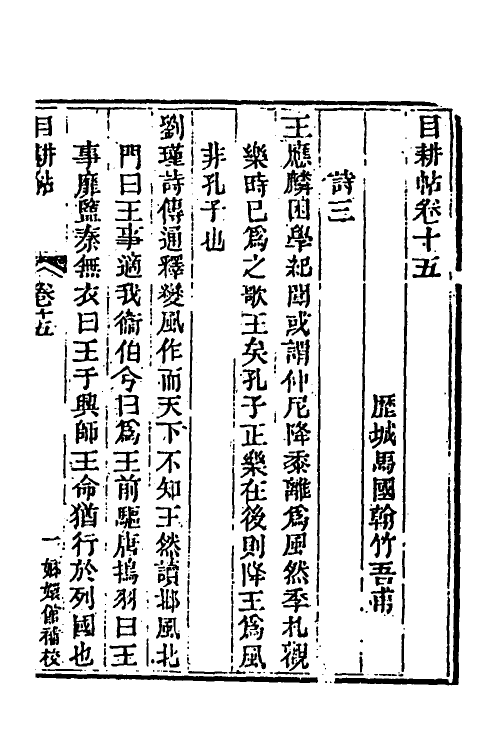 目耕帖卷十五
歷城馬國翰竹吾甫
詩三
王應麟困學紀聞或謂仲尼降黍離爲風然季札觀
樂時已爲之歌王矣孔子正樂在後則降王爲風
非孔子也
劉瑾詩傳通釋變風作而天下不知王然讀邶風北
門曰王事適我衞伯兮曰爲王前驅唐鴇羽曰王
事靡盬秦無衣曰王于興師王命猶行於列國也
目耕帖
卷十五
一
嫏嬛館補校